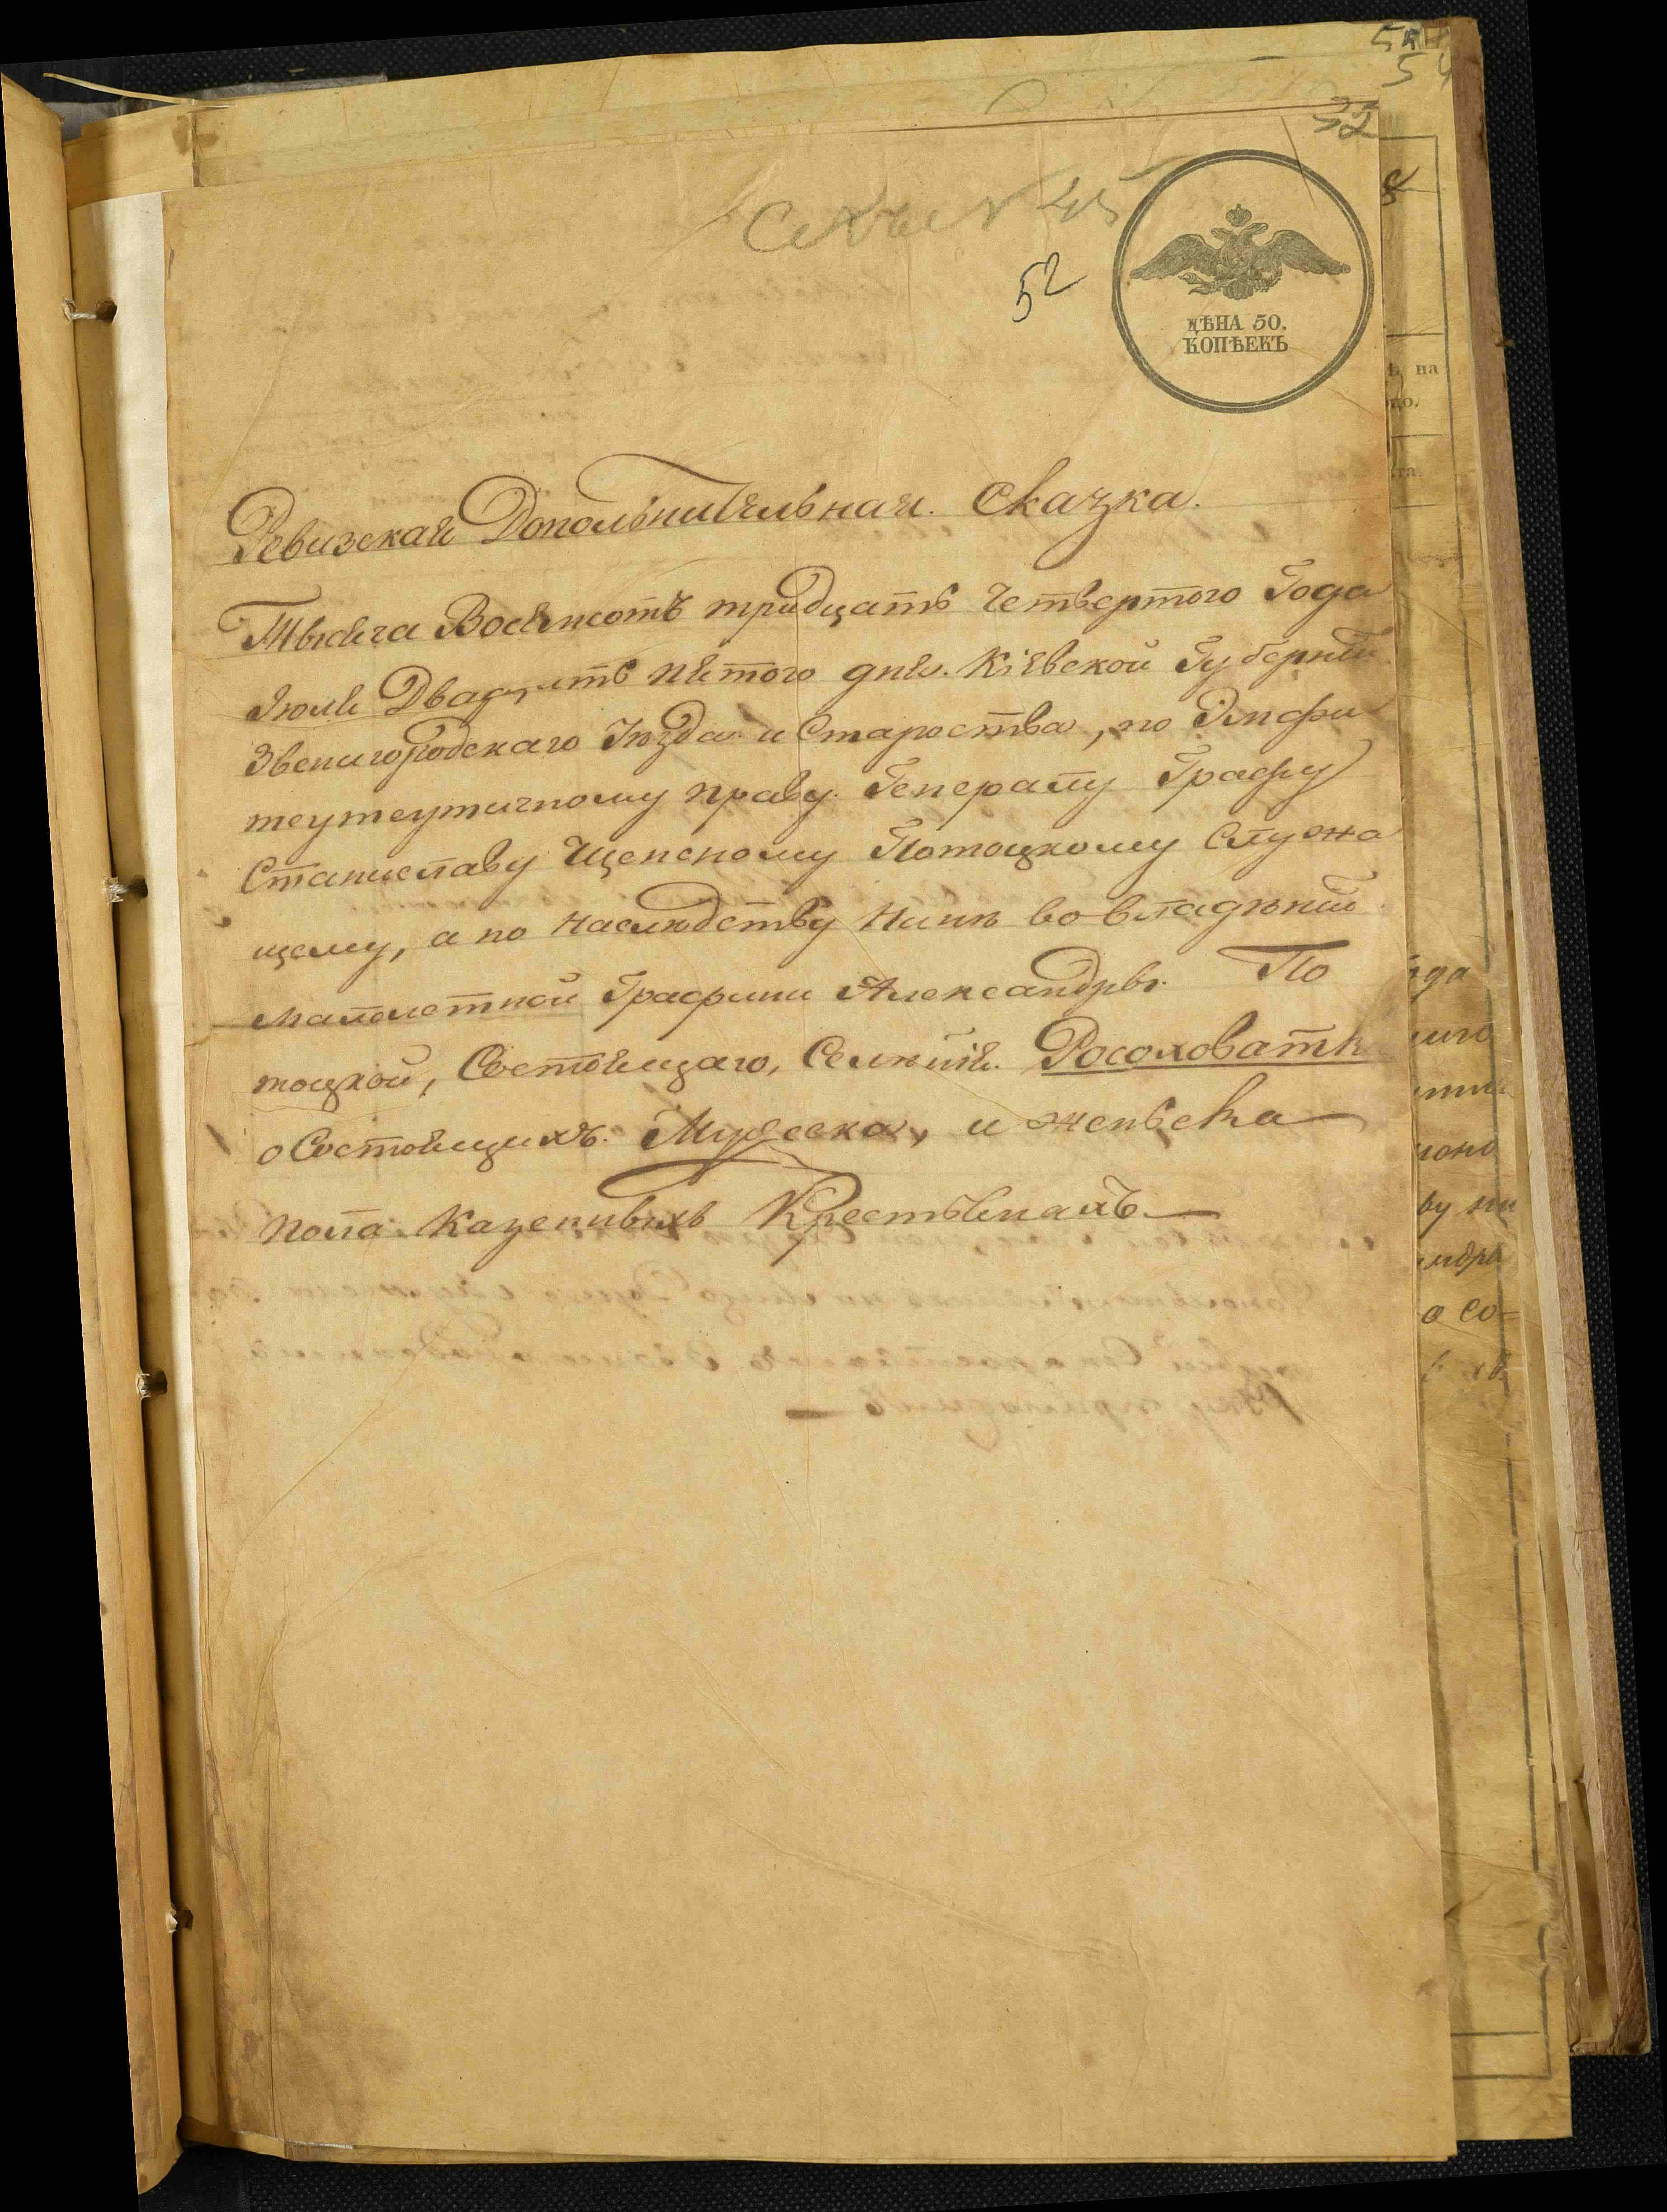 52
52
ЦѢНА 50.
КОПѢЕКЪ
Ревизская Дополнительная. Сказка.
Тысяча Восемсотъ тридцать Четвертого Года
Июля Двадцать пятого дня. Кіевской Губерніи
Звенигородскаго Уѣзда и Староства, по Эмфи
теутеутичному праву. Генералу Графу
Станиславу Щенсному Потоцкому Служа
щему, а по наслѣдству Нинѣ во владѣніи
малолетной Графини Александры. По
тоцкой, Состоящаго, Селѣнія. Росоховатки
о Состоящихъ. Мужеска, и женьска
пола Казенныхъ Крестьянахъ